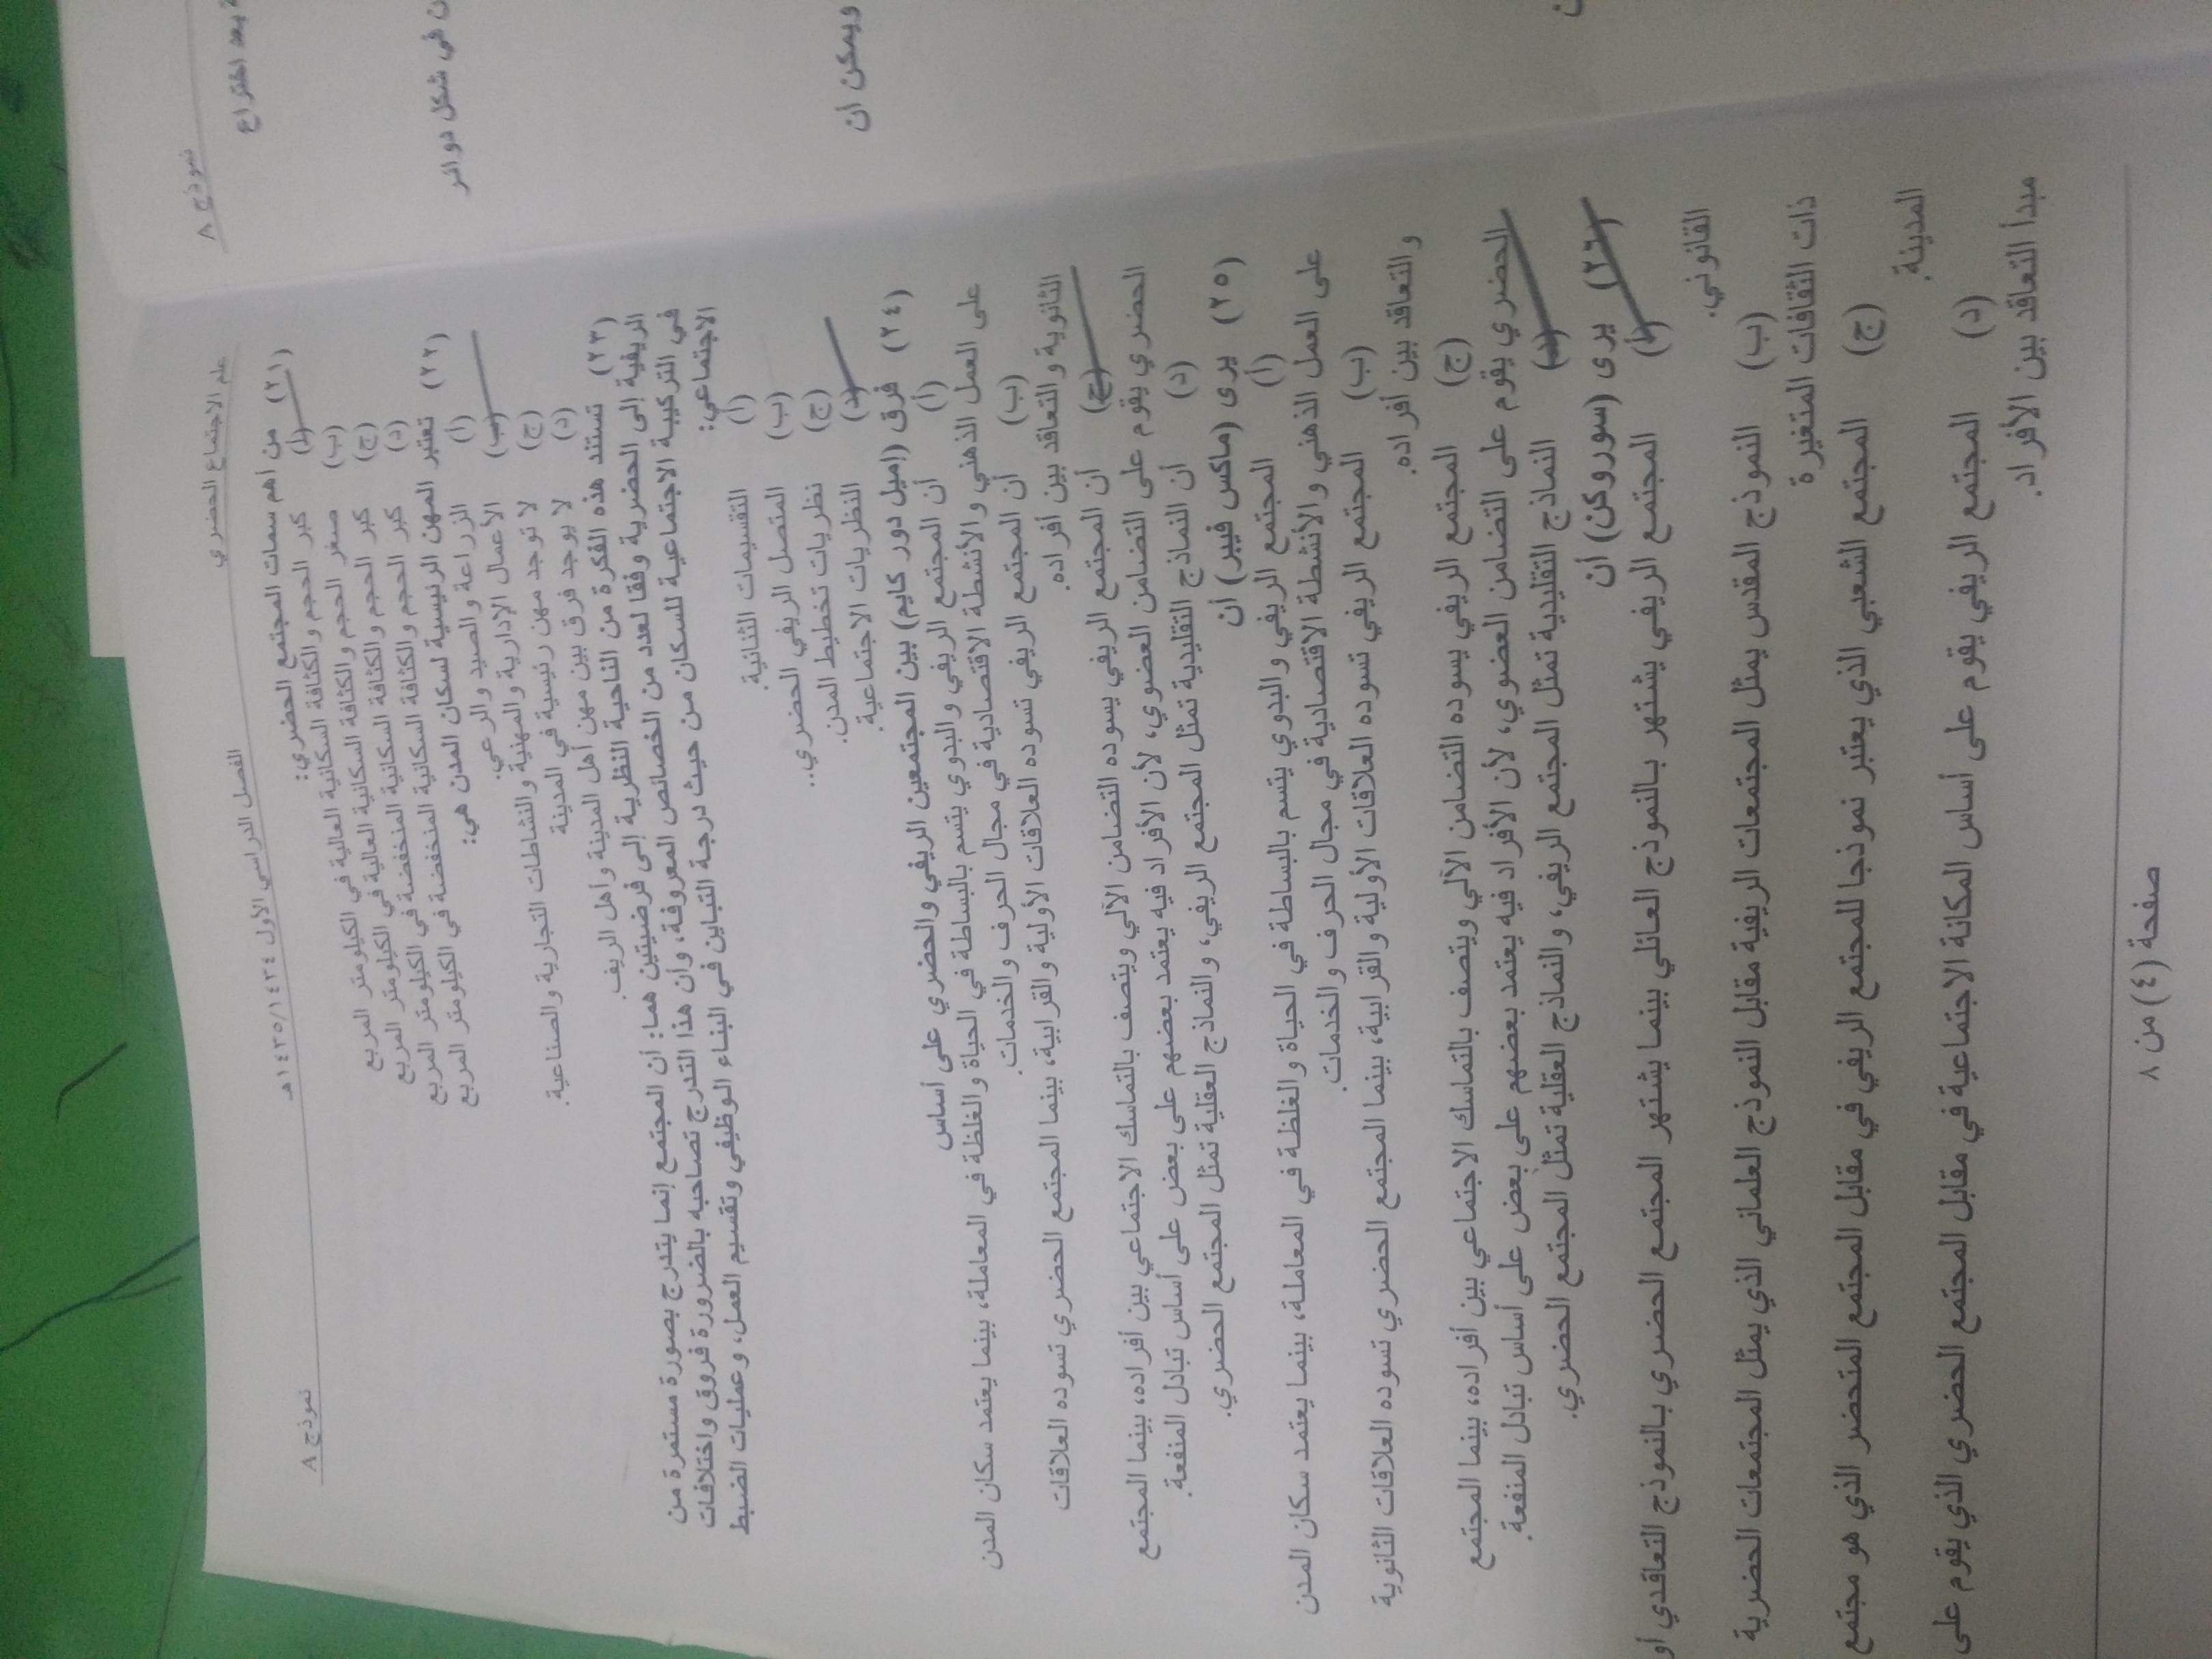 علم الاجتماع الحضري
الفصل الدراسي الأول ١٤٣٤/١٤٣٥هـ
نموذج ٨
(٢١) من أهم سمات المجتمع الحضري:
(أ) كبر الحجم والكثافة السكانية العالية في الكيلومتر المربع
(ب) صغر الحجم والكثافة السكانية العالية في الكيلومتر المربع
(ج) كبر الحجم والكثافة السكانية المنخفضة في الكيلومتر المربع
(د) كبر الحجم والكثافة السكانية المنخفضة في الكيلومتر المربع
(٢٢) تعتبر المهن الرئيسية لسكان المدن هي:
(أ) الزراعة والصيد والرعي.
(ب) الأعمال الإدارية والمهنية والنشاطات التجارية والصناعية.
(ج) لا توجد مهن رئيسية في المدينة
(د) لا يوجد فرق بين مهن أهل المدينة وأهل الريف.
(٢٣) تستند هذه الفكرة من الناحية النظرية إلى فرضيتين هما: أن المجتمع إنما يتدرج بصورة مستمرة من
الريفية إلى الحضرية وفقا لعدد من الخصائص المعروفة، وأن هذا التدرج تصاحبه بالضرورة فروق واختلافات
في التركيبة الاجتماعية للسكان من حيث درجة التباين في البناء الوظيفي وتقسيم العمل، وعمليات الضبط
الاجتماعي:
(أ) التقسيمات الثنائية.
(ب) المتصل الريفي الحضري..
(ج) نظريات تخطيط المدن.
(د) النظريات الاجتماعية.
(٢٤) فرق (إميل دور كايم) بين المجتمعين الريفي والحضري على أساس
(أ) أن المجتمع الريفي والبدوي يتسم بالبساطة في الحياة والغلظة في المعاملة، بينما يعتمد سكان المدن
على العمل الذهني والأنشطة الاقتصادية في مجال الحرف والخدمات.
(ب) أن المجتمع الريفي تسوده العلاقات الأولية والقرابية، بينما المجتمع الحضري تسوده العلاقات
الثانوية والتعاقد بين أفراده.
(ج) أن المجتمع الريفي يسوده التضامن الآلي ويتصف بالتماسك الاجتماعي بين أفراده، بينما المجتمع
الحضري يقوم على التضامن العضوي، لأن الأفراد فيه يعتمد بعضهم على بعض على أساس تبادل المنفعة.
(د) أن النماذج التقليدية تمثل المجتمع الريفي، والنماذج العقلية تمثل المجتمع الحضري.
(٢٥) يرى (ماكس فيبر) أن
(أ) المجتمع الريفي والبدوي يتسم بالبساطة في الحياة والغلظة في المعاملة، بينما يعتمد سكان المدن
على العمل الذهني والأنشطة الاقتصادية في مجال الحرف والخدمات.
(ب) المجتمع الريفي تسوده العلاقات الأولية والقرابية، بينما المجتمع الحضري تسوده العلاقات الثانوية
والتعاقد بين أفراده.
(ج) المجتمع الريفي يسوده التضامن الآلي ويتصف بالتماسك الاجتماعي بين أفراده، بينما المجتمع
الحضري يقوم على التضامن العضوي، لأن الأفراد فيه يعتمد بعضهم على بعض على أساس تبادل المنفعة.
(د) النماذج التقليدية تمثل المجتمع الريفي، والنماذج العقلية تمثل المجتمع الحضري.
(٢٦) يرى (سوروكن) أن
(أ) المجتمع الريفي يشتهر بالنموذج العائلي بينما يشتهر المجتمع الحضري بالنموذج التعاقدي أو
القانوني.
(ب) النموذج المقدس يمثل المجتمعات الريفية مقابل النموذج العلماني الذي يمثل المجتمعات الحضرية
ذات الثقافات المتغيرة
(ج) المجتمع الشعبي الذي يعتبر نموذجا للمجتمع الريفي في مقابل المجتمع المتحضر الذي هو مجتمع
المدينة.
(د) المجتمع الريفي يقوم على أساس المكانة الاجتماعية في مقابل المجتمع الحضري الذي يقوم على
مبدأ التعاقد بين الأفراد.
صفحة (٤) من ٨
نموذج ٨
بعد اختراع
في شكل دوائر
ويمكن أن